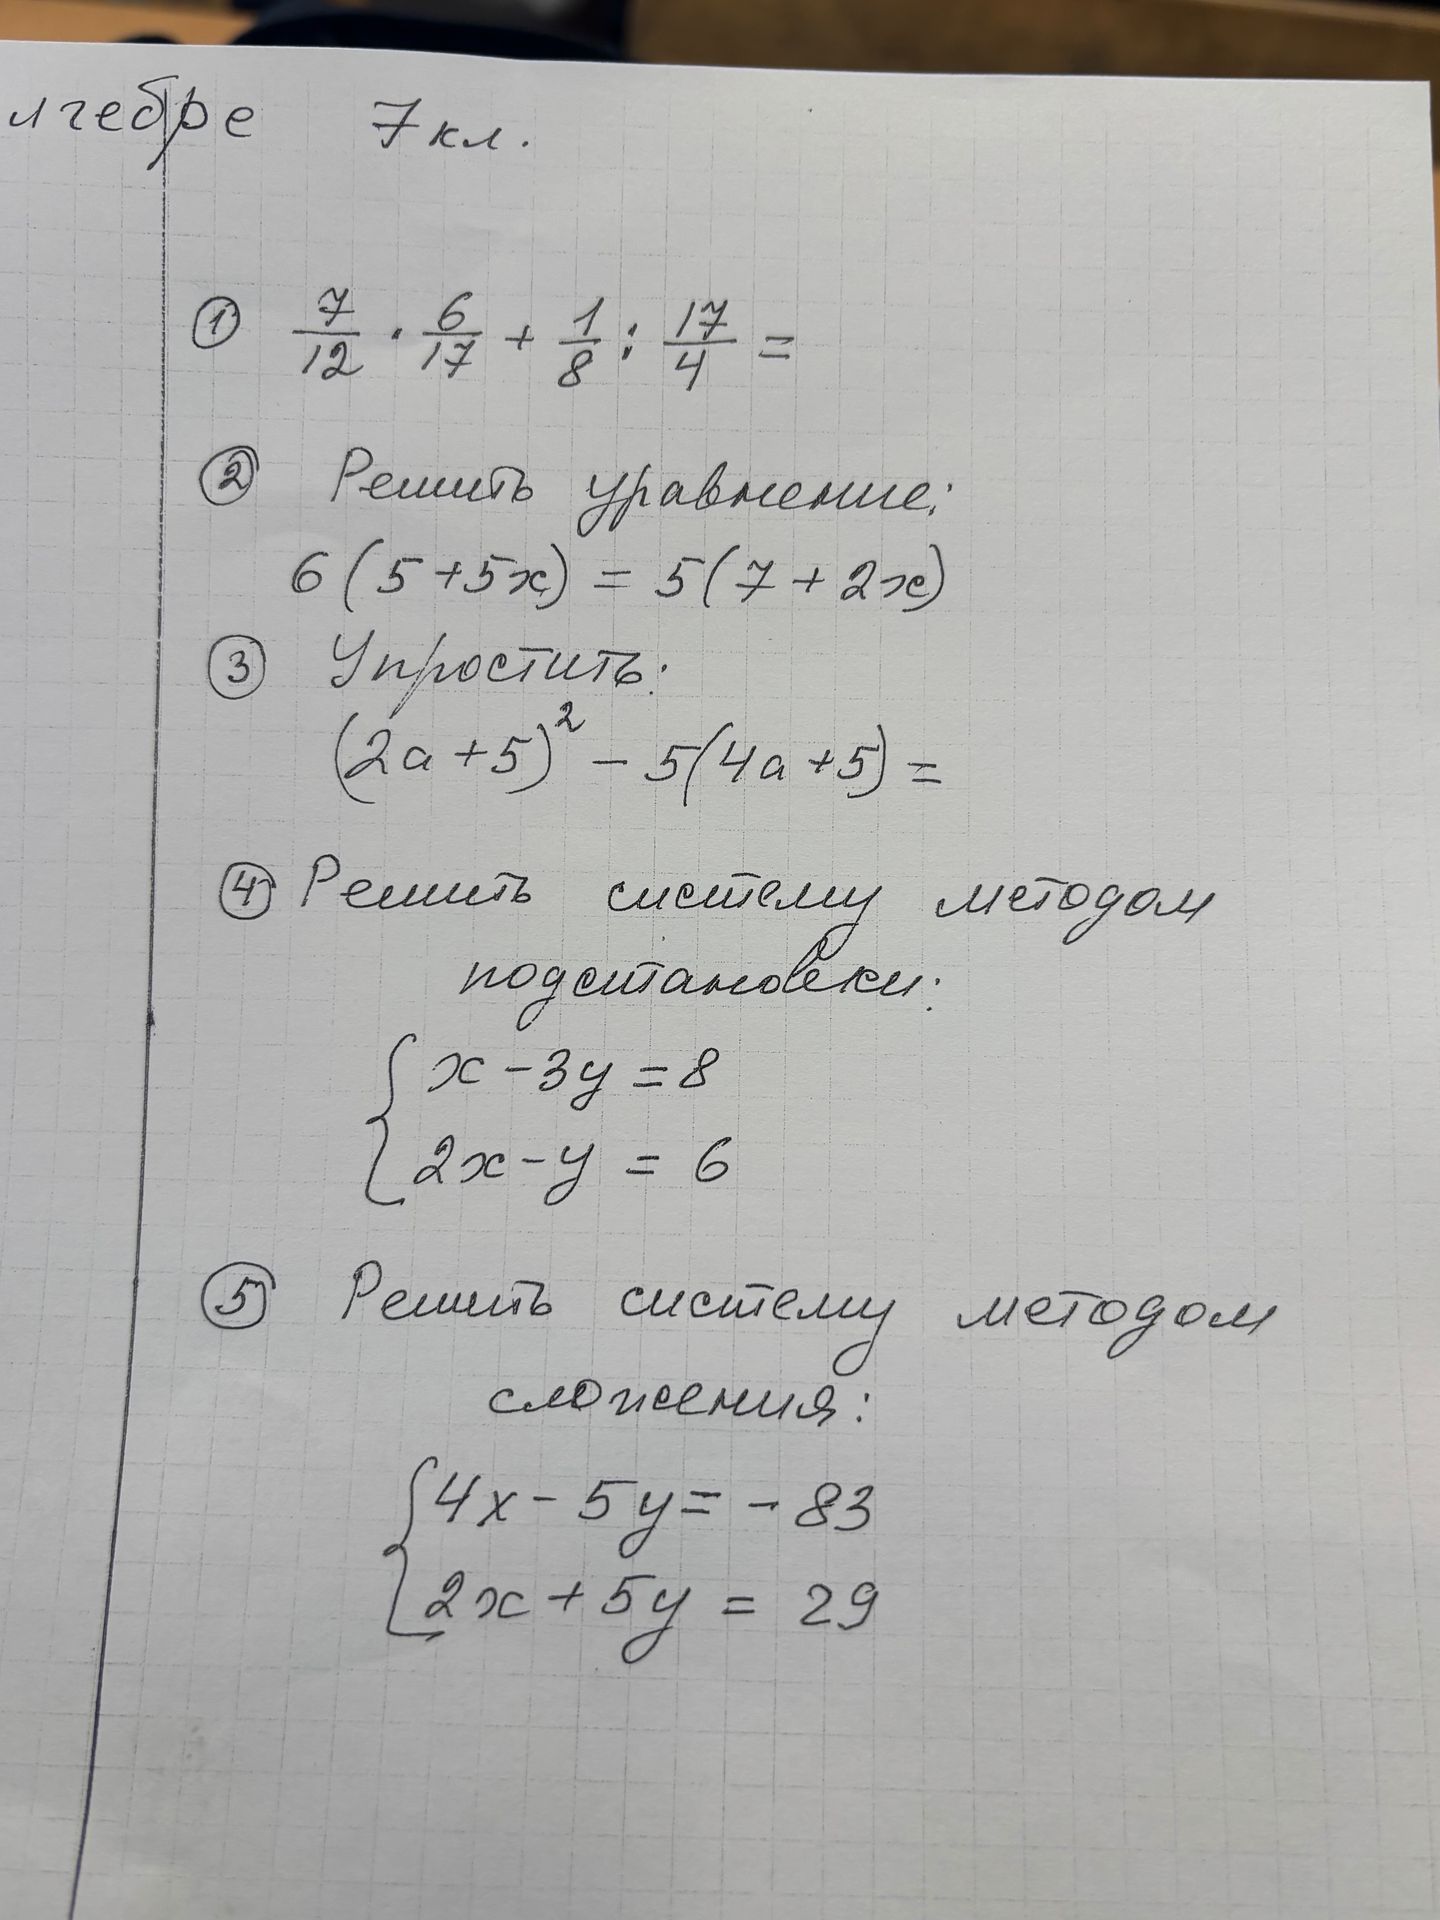 лгебре 7 кл.
① 7/12 · 6/17 + 1/8 : 17/4 =
② Решить уравнение:
6(5+5x) = 5(7+2x)
③ Упростить:
(2a+5)² - 5(4a+5) =
④ Решить систему методом
подстановки:
{ x - 3y = 8
2x - y = 6
⑤ Решить систему методом
сложения:
{ 4x - 5y = - 83
2x + 5y = 29